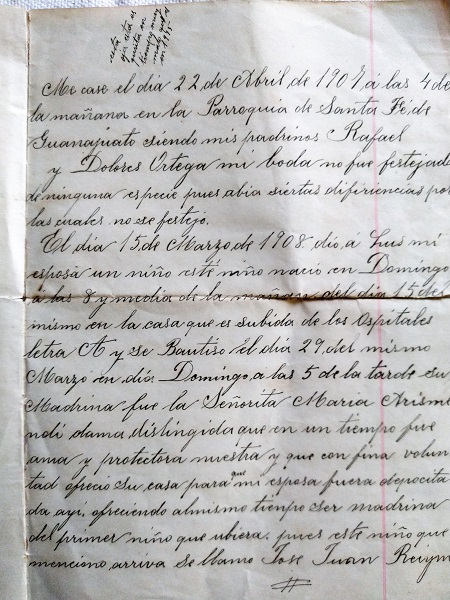 esta
Me case el día 22 de Abril, de 1907 á las 4 de
la mañana en la Parroquia de Santa Fé, de
Guanajuato siendo mis padrinos Rafael
y Dolores Ortega mi boda no fue festejada
de ninguna especie pues abia siertas difiriencias por
las cuales no se festejo.
El día 15, de Marzo, de 1908, dio, a Luis mi
esposa un niño este niño nació en Domingo
á las 8 y media de la mañan del dia 15 del
mismo en la casa que es subida de los Ospitales
letra A y se Bautiso el día 29, del mismo
Marzo en día Domingo, a las 5 de la tarde su
Madrina fue la Señorita Maria Arisme
ndi dama, distingida que en un tiempo fue
ama y protectora nuestra y que con fina volun
tad ofrecio su, casa para que mi esposa fuera deposita
da ayi, ofreciendo almismo tiempo ser madrina
del primer niño que ubiera, pues este niño que
menciono, arriva se llamo Jose Juan